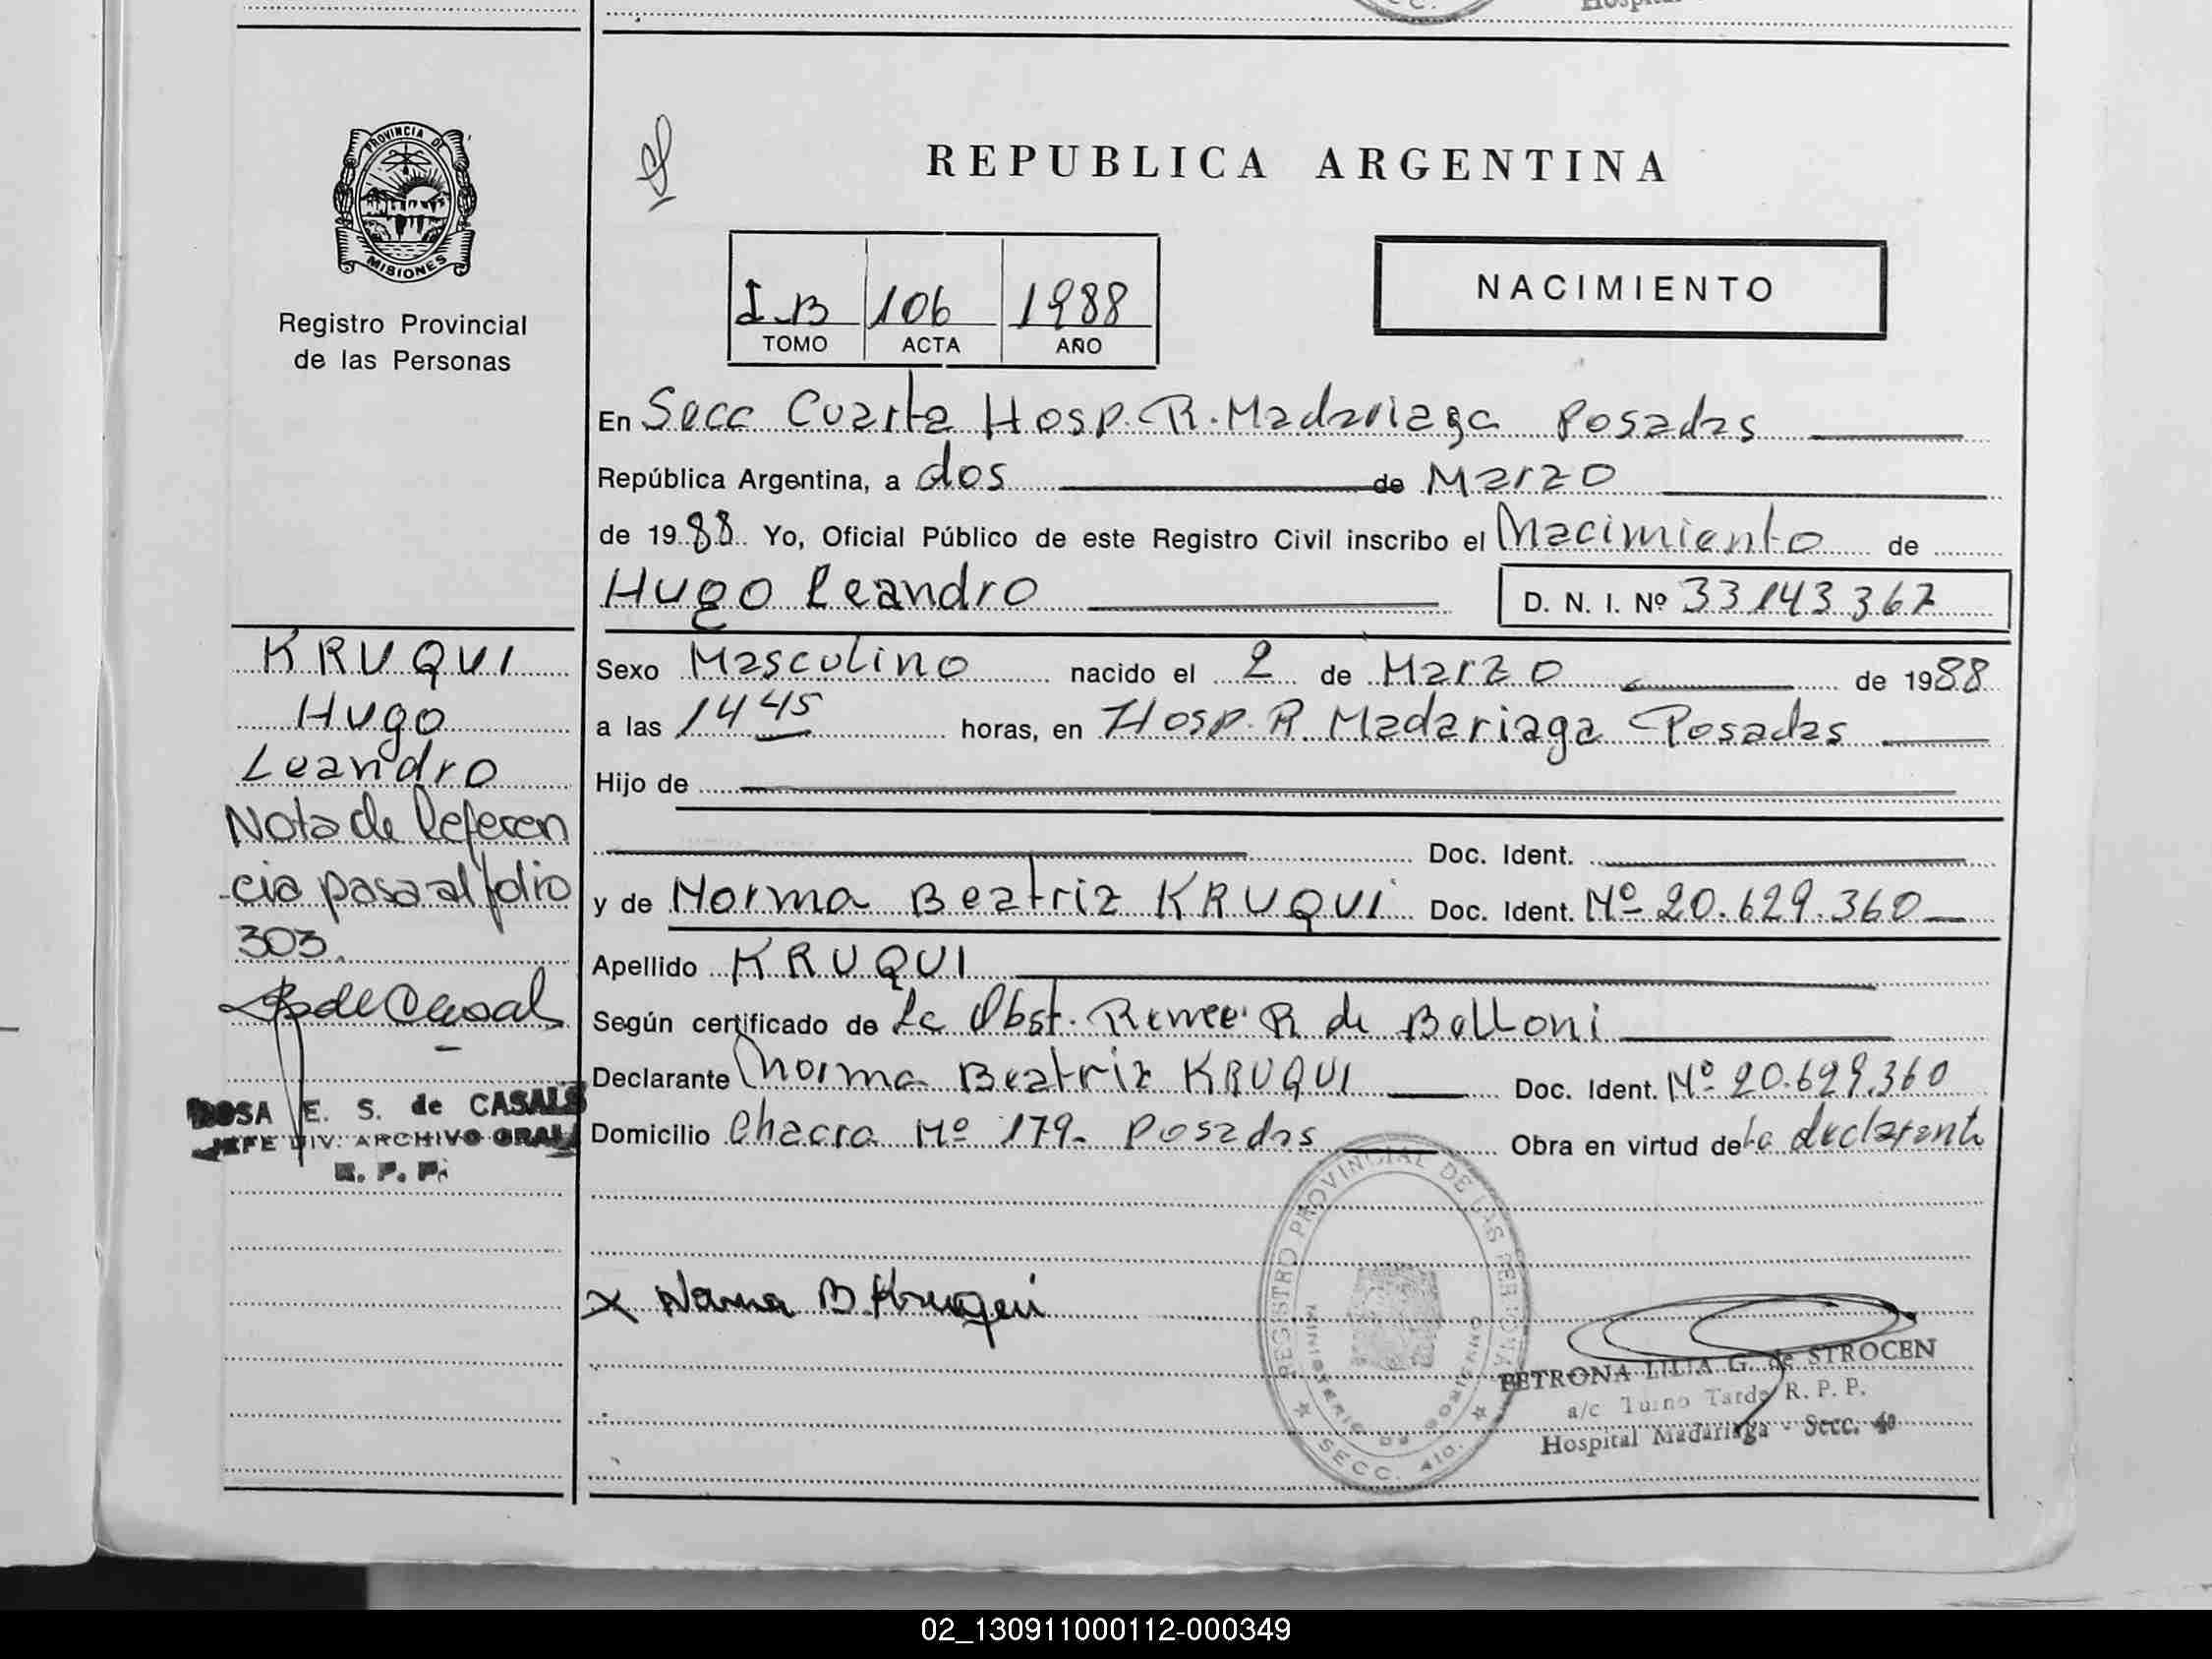 PROVINCIA DE
MISIONES
Registro Provincial
de las Personas
REPUBLICA ARGENTINA
I-B 106 1988
TOMO ACTA AÑO
NACIMIENTO
En Secc Cuarta Hosp. R. Madariaga Posadas
República Argentina, a dos de Marzo
de 1988 Yo, Oficial Público de este Registro Civil inscribo el Nacimiento de
Hugo Leandro D. N. I. Nº 33143367
KRUQUI
Hugo
Leandro
Nota de Referen
-cia pasa al folio
303.
ROSA E. S. de CASALS
JEFE DIV. ARCHIVO GRAL
R. P. P.
Sexo Masculino nacido el 2 de Marzo de 1988
a las 14 45 horas, en Hosp. R. Madariaga Posadas
Hijo de
Doc. Ident.
y de Norma Beatriz KRUQUI Doc. Ident. Nº 20.629.360
Apellido KRUQUI
Según certificado de La Obst. Renee R de Belloni
Declarante Norma Beatriz KRUQUI Doc. Ident. Nº 20.629.360
Domicilio Chacra Nº 179- Posadas Obra en virtud de La declarante
REGISTRO PROVINCIAL DE LAS PERSONAS
MINISTERIO DE GOBIERNO
SECC. 4ta.
x Norma B Kruqui
PETRONA LILIA G. de STROCEN
a/c Turno Tarde R. P. P.
Hospital Madariaga - Secc.
02_130911000112-000349